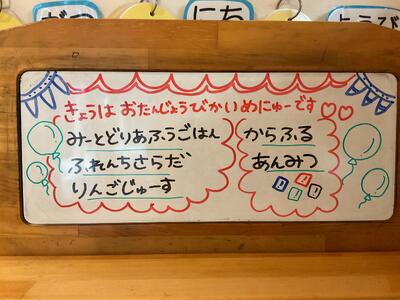 がつ
にち
ようび
きょうは おたんじょうびかいめにゅーです♡♡
みーとどりあふうごはん
ふれんちさらだ
りんごじゅーす
からふる
あんみつ